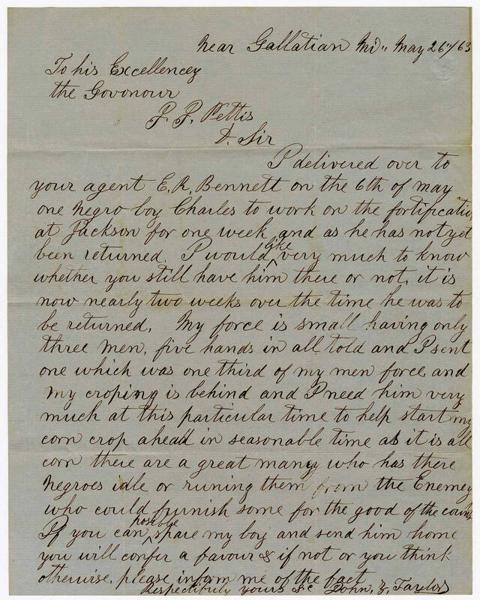 Near Gallatian Mi,, May 26th/63
To his Excellencey
the Govonour
J. J. Pettis
D. Sir
I delivered over to
your agent E. R. Bennett on the 6th of may
one negro boy Charles to work on the fortificatio
at Jackson for one week and as he has not yet
been returned, I would like very much to know
whether you still have him there or not, it is
now nearly two weeks over the time he was to
be returned, My force is small having only
three men, five hands in all told and I sent
one which was one third of my men force and
my croping is behind and I need him very
much at this particular time to help start my
corn crop ahead in seasonable time as it is all
corn there are a great many who has there
Negroes idle or runing them from the Enemey
who could furnish some for the good of the coun
If you can posible spare my boy and send him home
you will confer a favour & if not or you think
otherwise, please inform me of the fact
Respectfuly yours &c John, Taylor